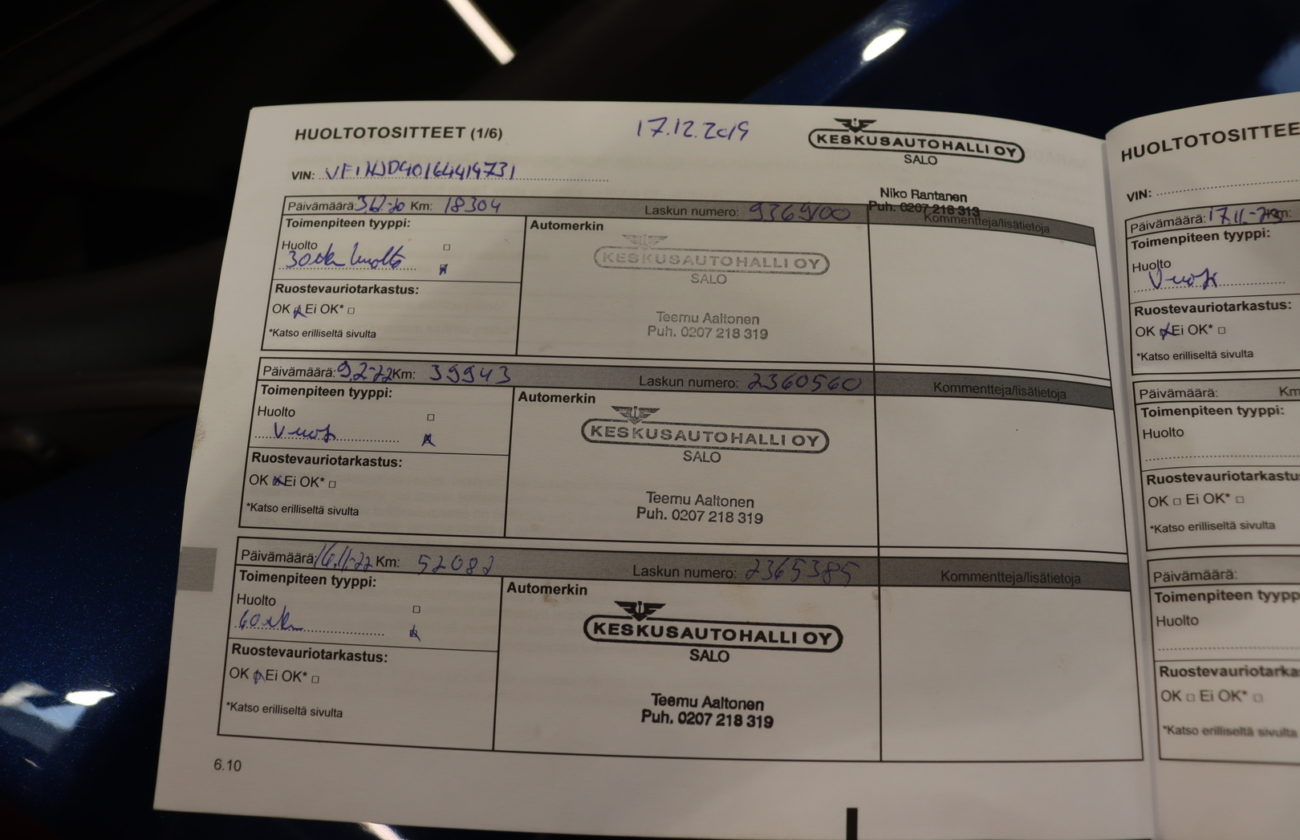 HUOLTOTOSITTEET (1/6)
17.12.2019
KESKUSAUTOHALLI OY
SALO
VIN:
Niko Rantanen
Puh. 0207 218 313
Päivämäärä: Km: 18304
Laskun numero:
Kommentteja/lisätietoja
Toimenpiteen tyyppi:
Huolto
huolto
Ruostevauriotarkastus:
OK Ei OK*
*Katso erilliseltä sivulta
Automerkin
KESKUSAUTOHALLI OY
SALO
Teemu Aaltonen
Puh. 0207 218 319
Päivämäärä: 9.2-22 Km: 39943
Laskun numero: 2360560
Kommentteja/lisätietoja
Toimenpiteen tyyppi:
Huolto
Ruostevauriotarkastus:
OK Ei OK*
*Katso erilliseltä sivulta
Automerkin
KESKUSAUTOHALLI OY
SALO
Teemu Aaltonen
Puh. 0207 218 319
Päivämäärä: 16.11-22 Km: 52082
Laskun numero: 2365385
Kommentteja/lisätietoja
Toimenpiteen tyyppi:
Huolto
Ruostevauriotarkastus:
OK Ei OK*
*Katso erilliseltä sivulta
Automerkin
KESKUSAUTOHALLI OY
SALO
Teemu Aaltonen
Puh. 0207 218 319
6.10
HUOLTOTOSITTEE
VIN:
Päivämäärä: Km:
Toimenpiteen tyyppi:
Huolto
Ruostevauriotarkastus:
OK Ei OK*
*Katso erilliseltä sivulta
Päivämäärä: Km
Toimenpiteen tyyppi:
Huolto
Ruostevauriotarkastu
OK Ei OK*
*Katso erilliseltä sivulta
Päivämäärä:
Toimenpiteen tyypp
Huolto
Ruostevauriotarka
OK Ei OK*
*Katso erilliseltä sivulta